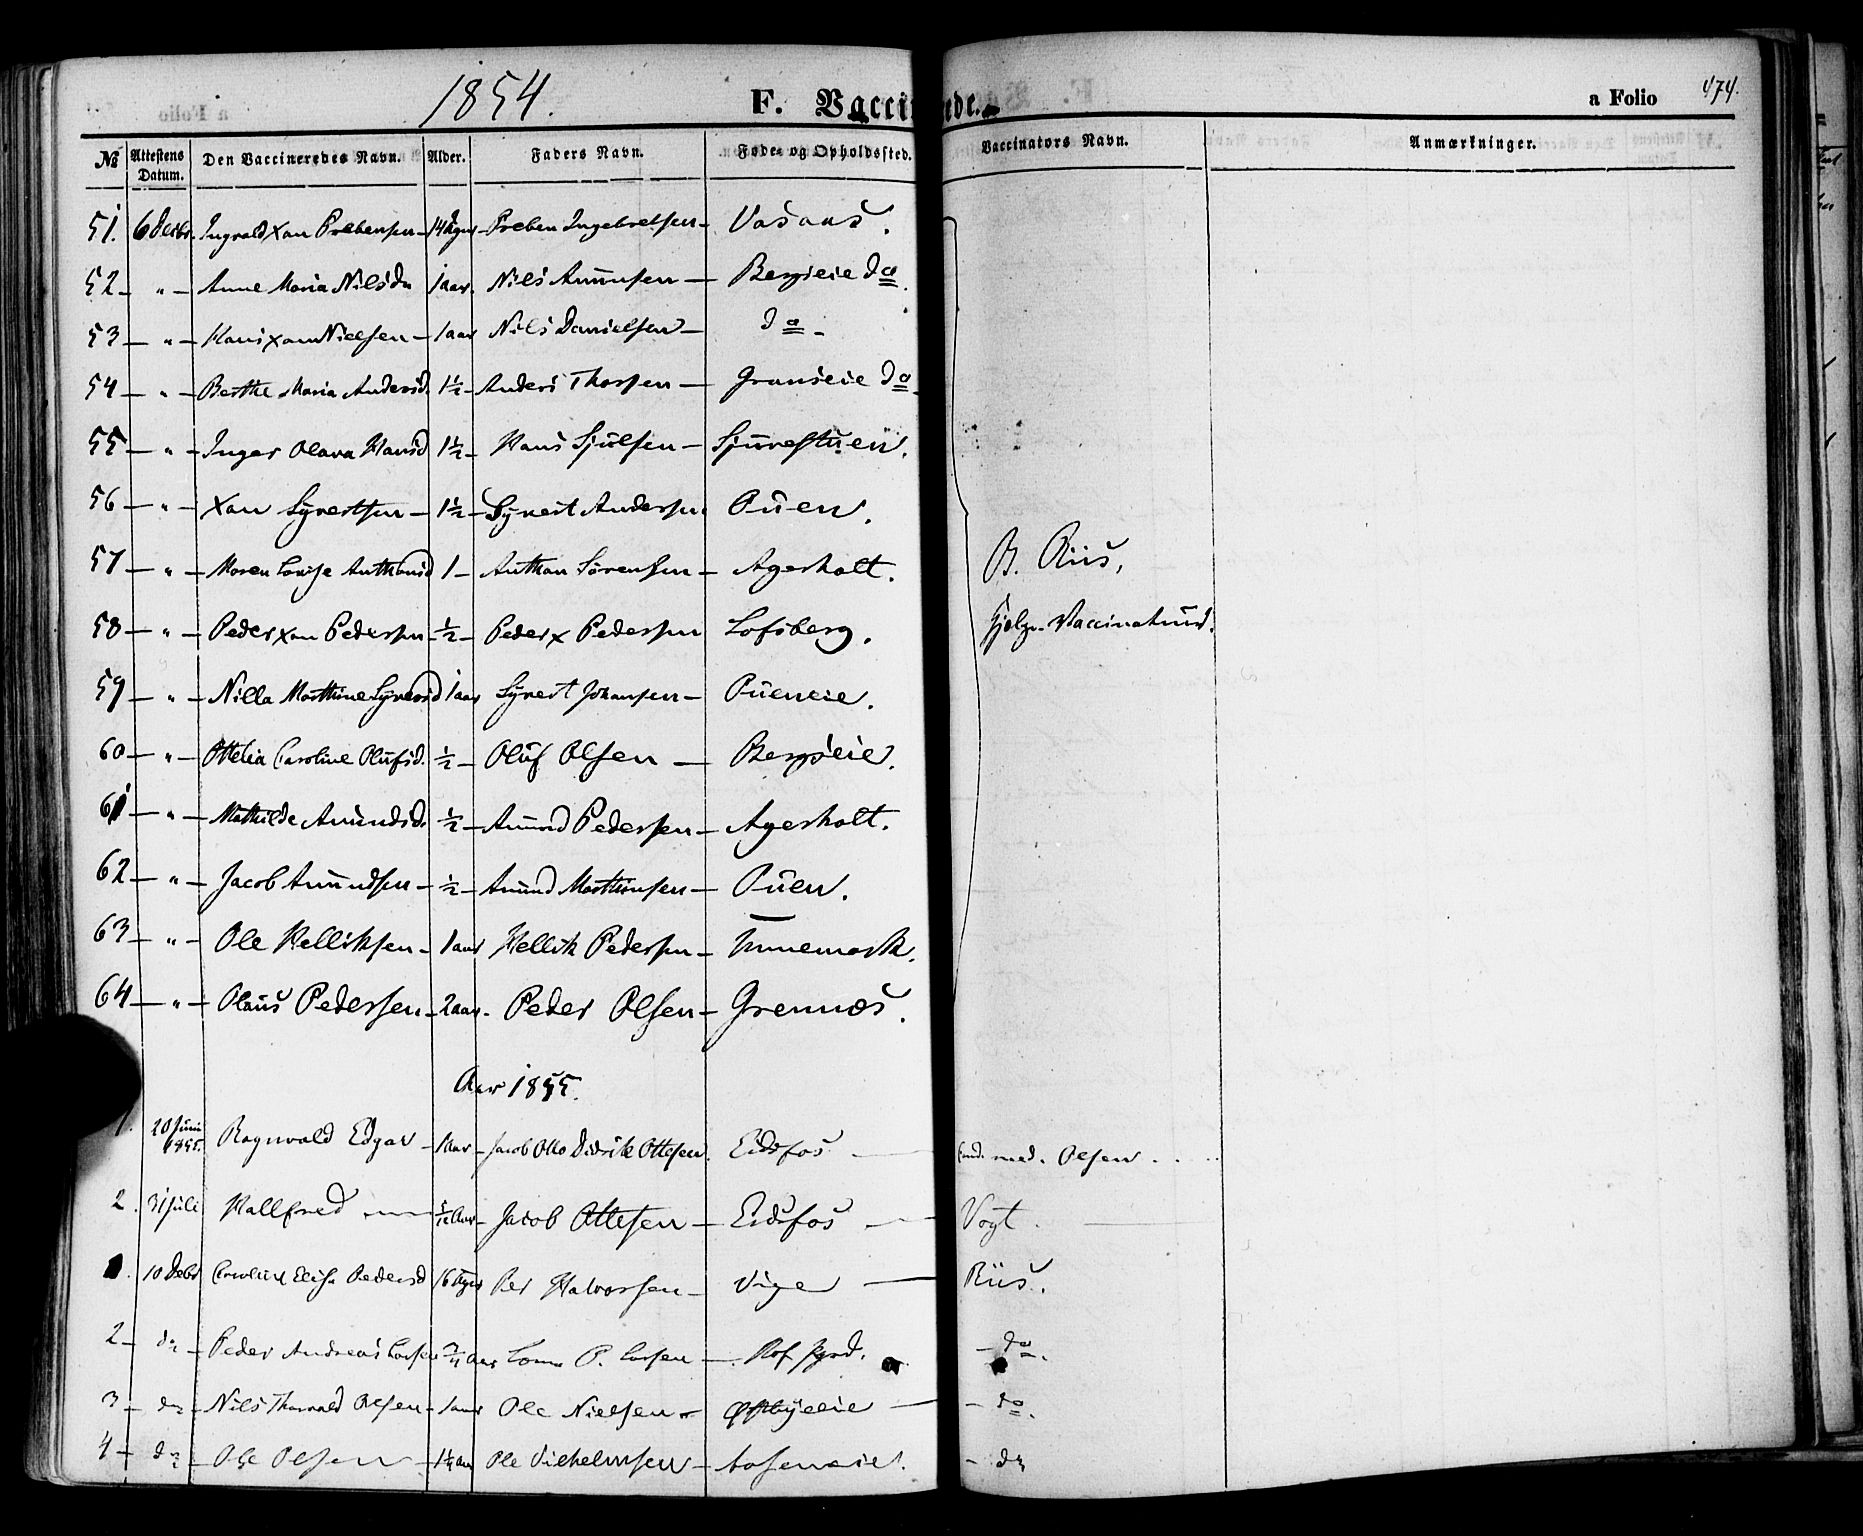 1854. F. Vaccinerede. a Folio 474.
№ Attestens Datum. Den Vaccineredes Navn. Alder. Faders Navn. Føde- og Opholdssted. Vaccinators Navn. Anmærkninger.
51. 6 Decbr. Ingvald Xan Prebensen 14 Preben Ingebretsen Vasaas.
52 " Anne Maria Nilsd 1 aar. Nils Amunsen Bergseie do
53 " Hans Xan Nielsen 1 aar Nils Danielsen do
54 " Berthe Maria Andersd. 1½ Anders Thorsen Granseie do
55 " Inger Olava Hansd 1½ Hans Sjulsen Sjurestuen.
56 " Xan Syvertsen 1½ Syvert Andersen Ruen.
57 " Maren Lovise Anthonsd 1 Anthon Sørensen Agerholt. B. Riis,
58 " Peder Xan Pedersen ½ Peder X Pedersen Lofsberg. Hjelpe-Vaccinateur.
59 " Nilla Marthine Syversd 1 aar Syvert Johansen Rueneie.
60 " Ottelia Caroline Olufsd. ½ Oluf Olsen Bergseie.
61 " Mathilde Amundsd. ½ Amund Pedersen Agerholt.
62 " Jacob Amundsen ½ Amund Marthinsen Ruen.
63 " Ole Helliksen 1 aar Hellik Pedersen Unnemark.
64 " Olaus Pedersen 2 aar. Peder Olsen Grennes.
Aar 1855.
1. 20 Juni 1855. Ragnvald Edgar 1 Aar Jacob Otto Didrik Ottesen. Eidsfos Cand. med. Olsen
2. 31 Juli Hallfred Aar Jacob Ottesen Eidsfos Vogt.
10 Debr Caroline Elise Pedersd 16 Per Halvorsen Vige Riis.
2 do Peder Andreas Larsen Aar P. Larsen Hof do.
3 do Nils Thorvald Olsen 1 aar Ole Nielsen Østbyeeie do.
4 do Ole Olsen 1½ aar Ole Vilhelmsen Aaseneie. do